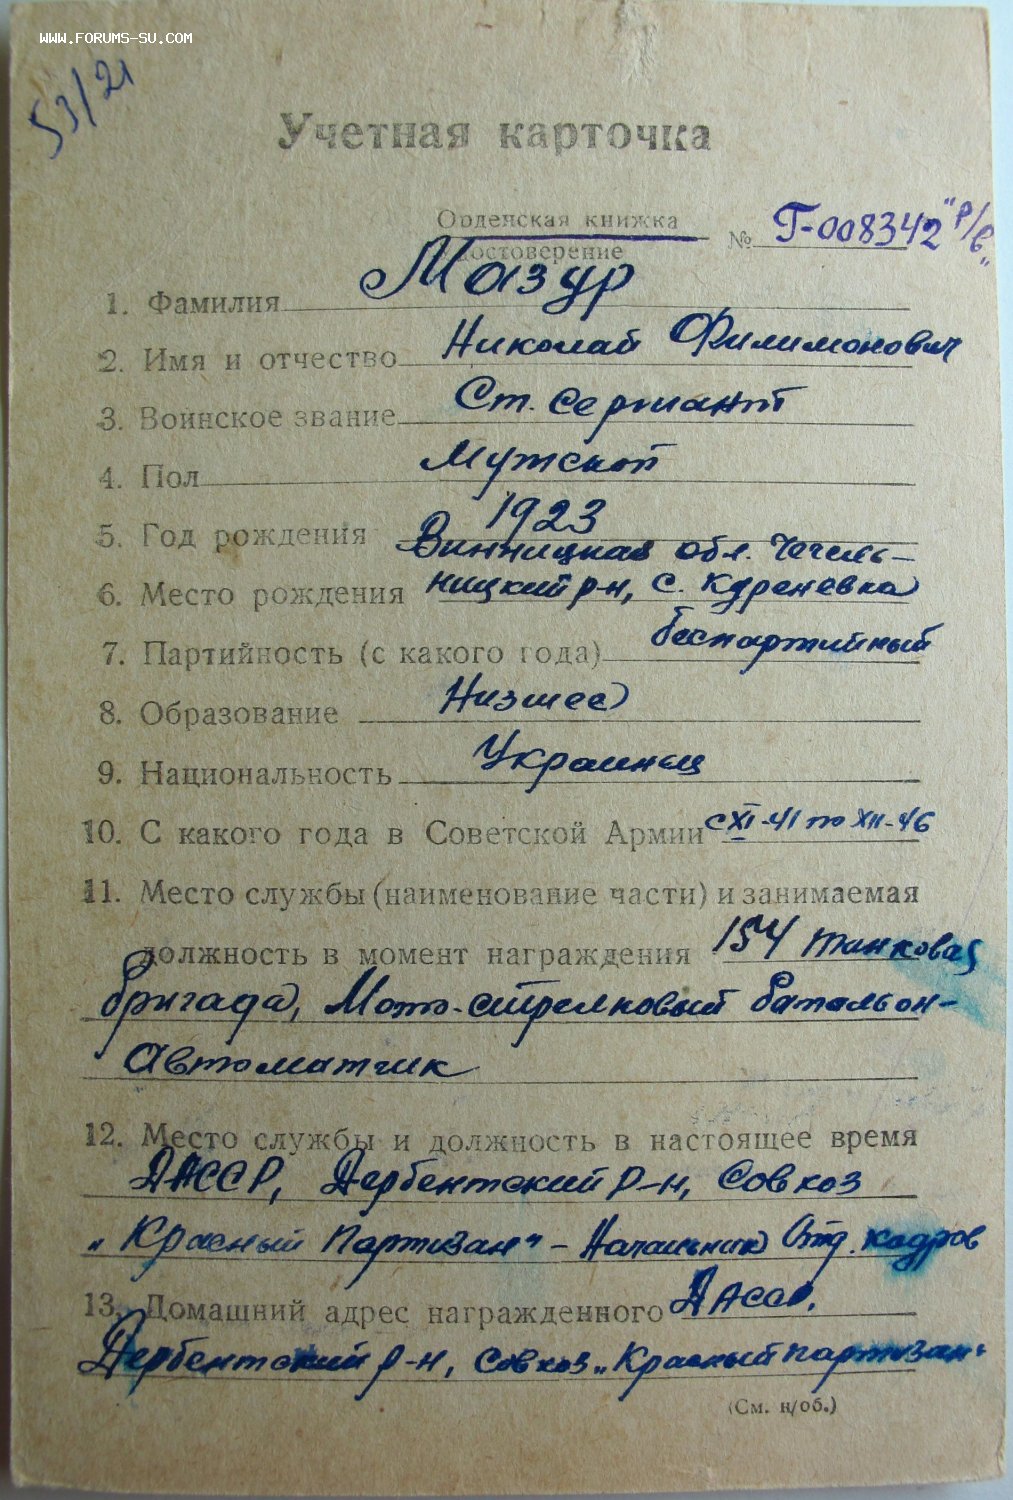 WWW.FORUMS-SU.COM
53/21
Учетная карточка
Орденская книжка
Удостоверение
№ Г-008342 "Р/б"
1. Фамилия Мазур
2. Имя и отчество Николай Филимонович
3. Воинское звание Ст. сержант
4. Пол Мужской
5. Год рождения 1923
Винницкая обл. Чечель-
6. Место рождения ницкий р-н, с. Куреневка
7. Партийность (с какого года) беспартийный
8. Образование Низшее
9. Национальность Украинец
10. С какого года в Советской Армии с XI-41 по XII-46
11. Место службы (наименование части) и занимаемая
должность в момент награждения 154 танковая
бригада, Мото-стрелковый батальон-
Автоматчик
12. Место службы и должность в настоящее время
ДАССР, Дербентский р-н, Совхоз
„Красный Партизан“ – Начальник Отд. кадров
13. Домашний адрес награжденного ДАССР.
Дербентский р-н, совхоз „Красный партизан“
(См. н/об.)